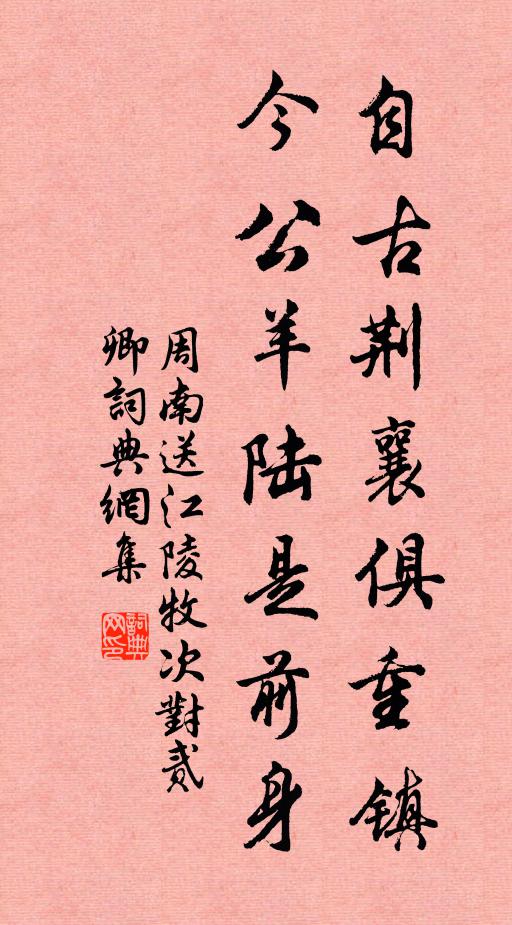 自古荆襄俱重镇
今公羊陆是前身
周南送江陵牧次對贰
卿詞典網集
詞典网印